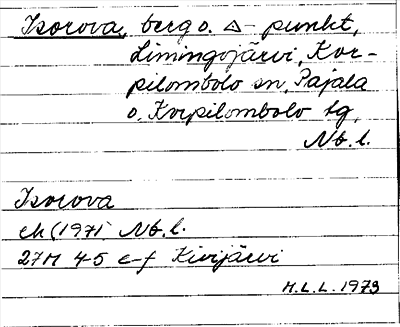 Isorova, berg o. △- punkt,
Limingojärvi, Kor-
pilombolo sn, Pajala
o. Korpilombolo tg,
Nb. l.
Isorova
ek (1971) Nb. l.
27M 4-5 e-f Kivijärvi
H.L.L. 1973